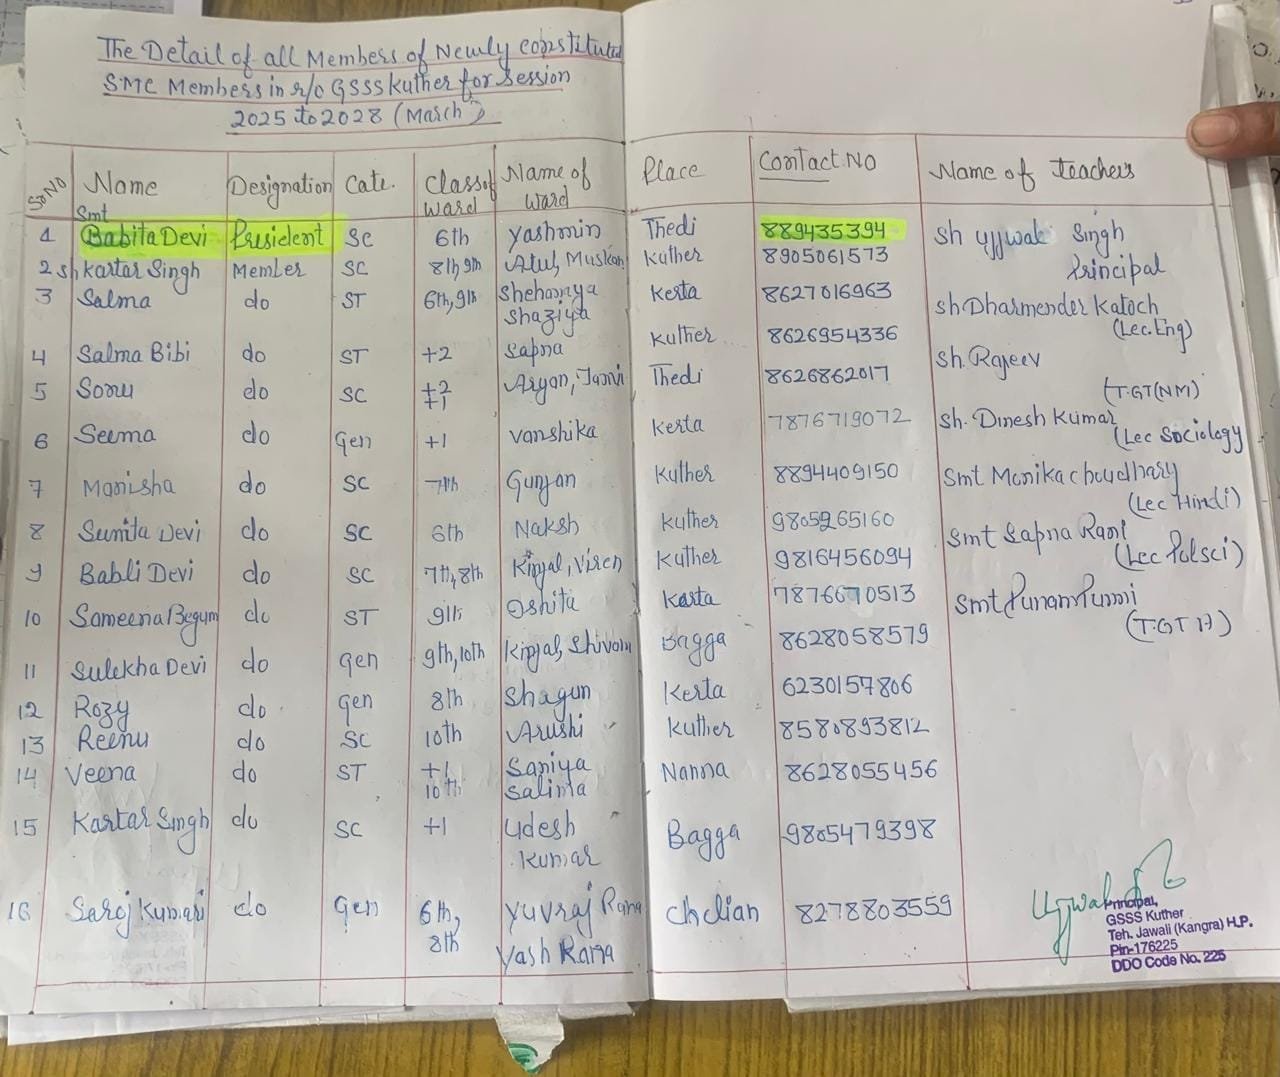 The Detail of all Members of Newly constituted
SMC Members in r/o GSSS Kuther for Session
2025 to 2028 (March)
Sr No Name Designation Cate. Class of ward Name of ward Place Contact.No Name of teachers
1 Smt Babita Devi President SC 6th Yashmin Thedi 889435394
2 sh Kartar Singh Member SC 8th, 9th Atul, Muskan Kuther 8905061573
3 Salma do ST 6th, 9th Shehamya Shaziya Kerta 8627016963
4 Salma Bibi do ST +2 Sapna Kuther 8626954336
5 Sonu do SC +2 +1 Aryan, Tanvi Thedi 8626862017
6 Seema do Gen +1 Vanshika Kerta 7876719072
7 Manisha do SC 7th Gunjan Kuther 8894409150
8 Sunita Devi do SC 6th Naksh Kuther 9805265160
9 Babli Devi do SC 7th, 8th Kinjal, Viren Kuther 9816456094
10 Sameena Begum do ST 9th Oshita Kerta 7876670513
11 Sulekha Devi do Gen 9th, 10th Kinjal, Shivam Bagga 8628058579
12 Rozy do Gen 8th Shagun Kerta 6230157806
13 Reenu do SC 10th Arushi Kuther 8580893812
14 Veena do ST +1 10th Saniya Salima Nanna 8628055456
15 Kartar Singh do SC +1 Udesh Kumar Bagga 9805479398
16 Saroj Kumari do Gen 6th, 8th Yuvraj Rana Yash Rana Chelian 8278803559
Sh Ujjwal Singh
Principal
Sh Dharmender Katoch
(Lec. Eng)
Sh. Rajeev
(T.GT (NM)
Sh. Dinesh Kumar
(Lec Sociology
Smt Monika choudhary
(Lec Hindi)
Smt Sapna Rani
(Lec Polsci)
Smt Punam Punni
(T.GT H)
Principal,
GSSS Kuther
Teh. Jawali (Kangra) H.P.
Pin-176225
DDO Code No. 225